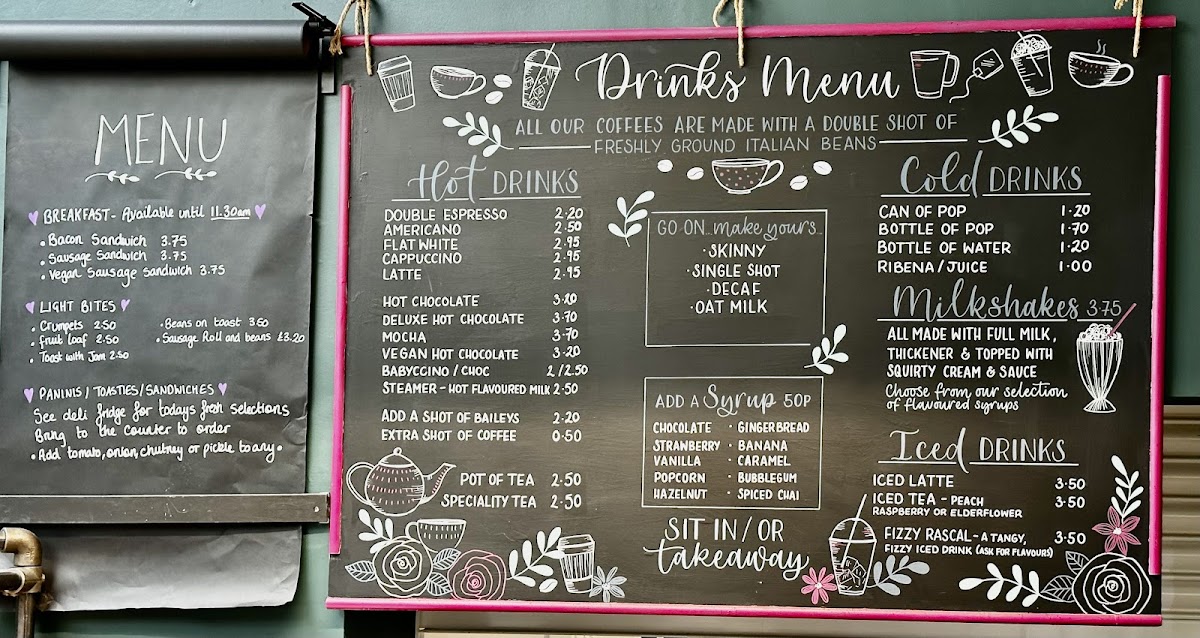 MENU
BREAKFAST - Available until 11.30am
• Bacon Sandwich 3.75
• Sausage Sandwich 3.75
• Vegan Sausage Sandwich 3.75
LIGHT BITES
• Crumpets 2.50
• fruit loaf 2.50
• Toast with Jam 2.50
• Beans on toast 3.50
• Sausage Roll and beans £3.20
PANINIS / TOASTIES / SANDWICHES
See deli fridge for todays fresh selections
Bring to the counter to order
• Add tomato, onion, chutney or pickle to any •
Drinks Menu
ALL OUR COFFEES ARE MADE WITH A DOUBLE SHOT OF
FRESHLY GROUND ITALIAN BEANS
Hot DRINKS
DOUBLE ESPRESSO 2.20
AMERICANO 2.50
FLAT WHITE 2.95
CAPPUCCINO 2.95
LATTE 2.95
HOT CHOCOLATE 3.20
DELUXE HOT CHOCOLATE 3.70
MOCHA 3.70
VEGAN HOT CHOCOLATE 3.20
BABYCCINO / CHOC 2/2.50
STEAMER - HOT FLAVOURED MILK 2.50
ADD A SHOT OF BAILEYS 2.20
EXTRA SHOT OF COFFEE 0.50
POT OF TEA 2.50
SPECIALITY TEA 2.50
GO ON... make yours...
• SKINNY
• SINGLE SHOT
• DECAF
• OAT MILK
ADD A Syrup 50P
CHOCOLATE • GINGERBREAD
STRAWBERRY • BANANA
VANILLA • CARAMEL
POPCORN • BUBBLEGUM
HAZELNUT • SPICED CHAI
SIT IN / OR
takeaway
Cold DRINKS
CAN OF POP 1.20
BOTTLE OF POP 1.70
BOTTLE OF WATER 1.20
RIBENA / JUICE 1.00
Milkshakes 3.75
ALL MADE WITH FULL MILK,
THICKENER & TOPPED WITH
SQUIRTY CREAM & SAUCE
Choose from our selection
of flavoured syrups
Iced DRINKS
ICED LATTE 3.50
ICED TEA - PEACH 3.50
RASPBERRY OR ELDERFLOWER
FIZZY RASCAL - A TANGY, 3.50
FIZZY ICED DRINK (ASK FOR FLAVOURS)